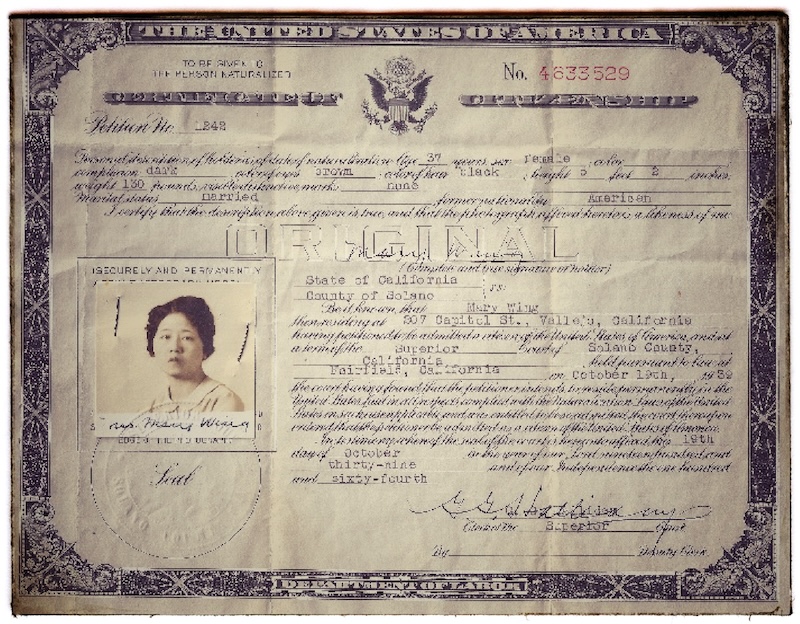 THE UNITED STATES OF AMERICA
TO BE GIVEN TO
THE PERSON NATURALIZED
No. 4633529
CERTIFICATE OF CITIZENSHIP
Petition No. 1242
Personal description of holder as of date of naturalization: Age 37 years; sex female color
complexion dark color of eyes brown color of hair black height 5 feet 2 inches;
weight 130 pounds; visible distinctive marks none
Marital status married former nationality American
I certify that the description above given is true, and that the photograph affixed hereto is a likeness of me.
ORIGINAL
Mary Wing
(Complete and true signature of holder)
State of California
County of Solano
ss:
Be it known that Mary Wing
then residing at 307 Capitol St., Vallejo, California
having petitioned to be admitted a citizen of the United States of America, and at
a term of the Superior Court of Solano County,
California held pursuant to law at
Fairfield, California on October 19th, 1939
the court having found that the petitioner intends to reside permanently in the
United States, had in all respects complied with the Naturalization Laws of the United
States in such case applicable, and was entitled to be so admitted, the court thereupon
ordered that the petitioner be admitted as a citizen of the United States of America.
In testimony whereof the seal of the court is hereunto affixed this 19th
day of October in the year of our Lord nineteen hundred and
thirty-nine and of our Independence the one hundred
and sixty-fourth
Clerk of the Superior Court
By Deputy Clerk
SECURELY AND PERMANENTLY
Mrs. Mary Wing
Seal
DEPARTMENT OF LABOR